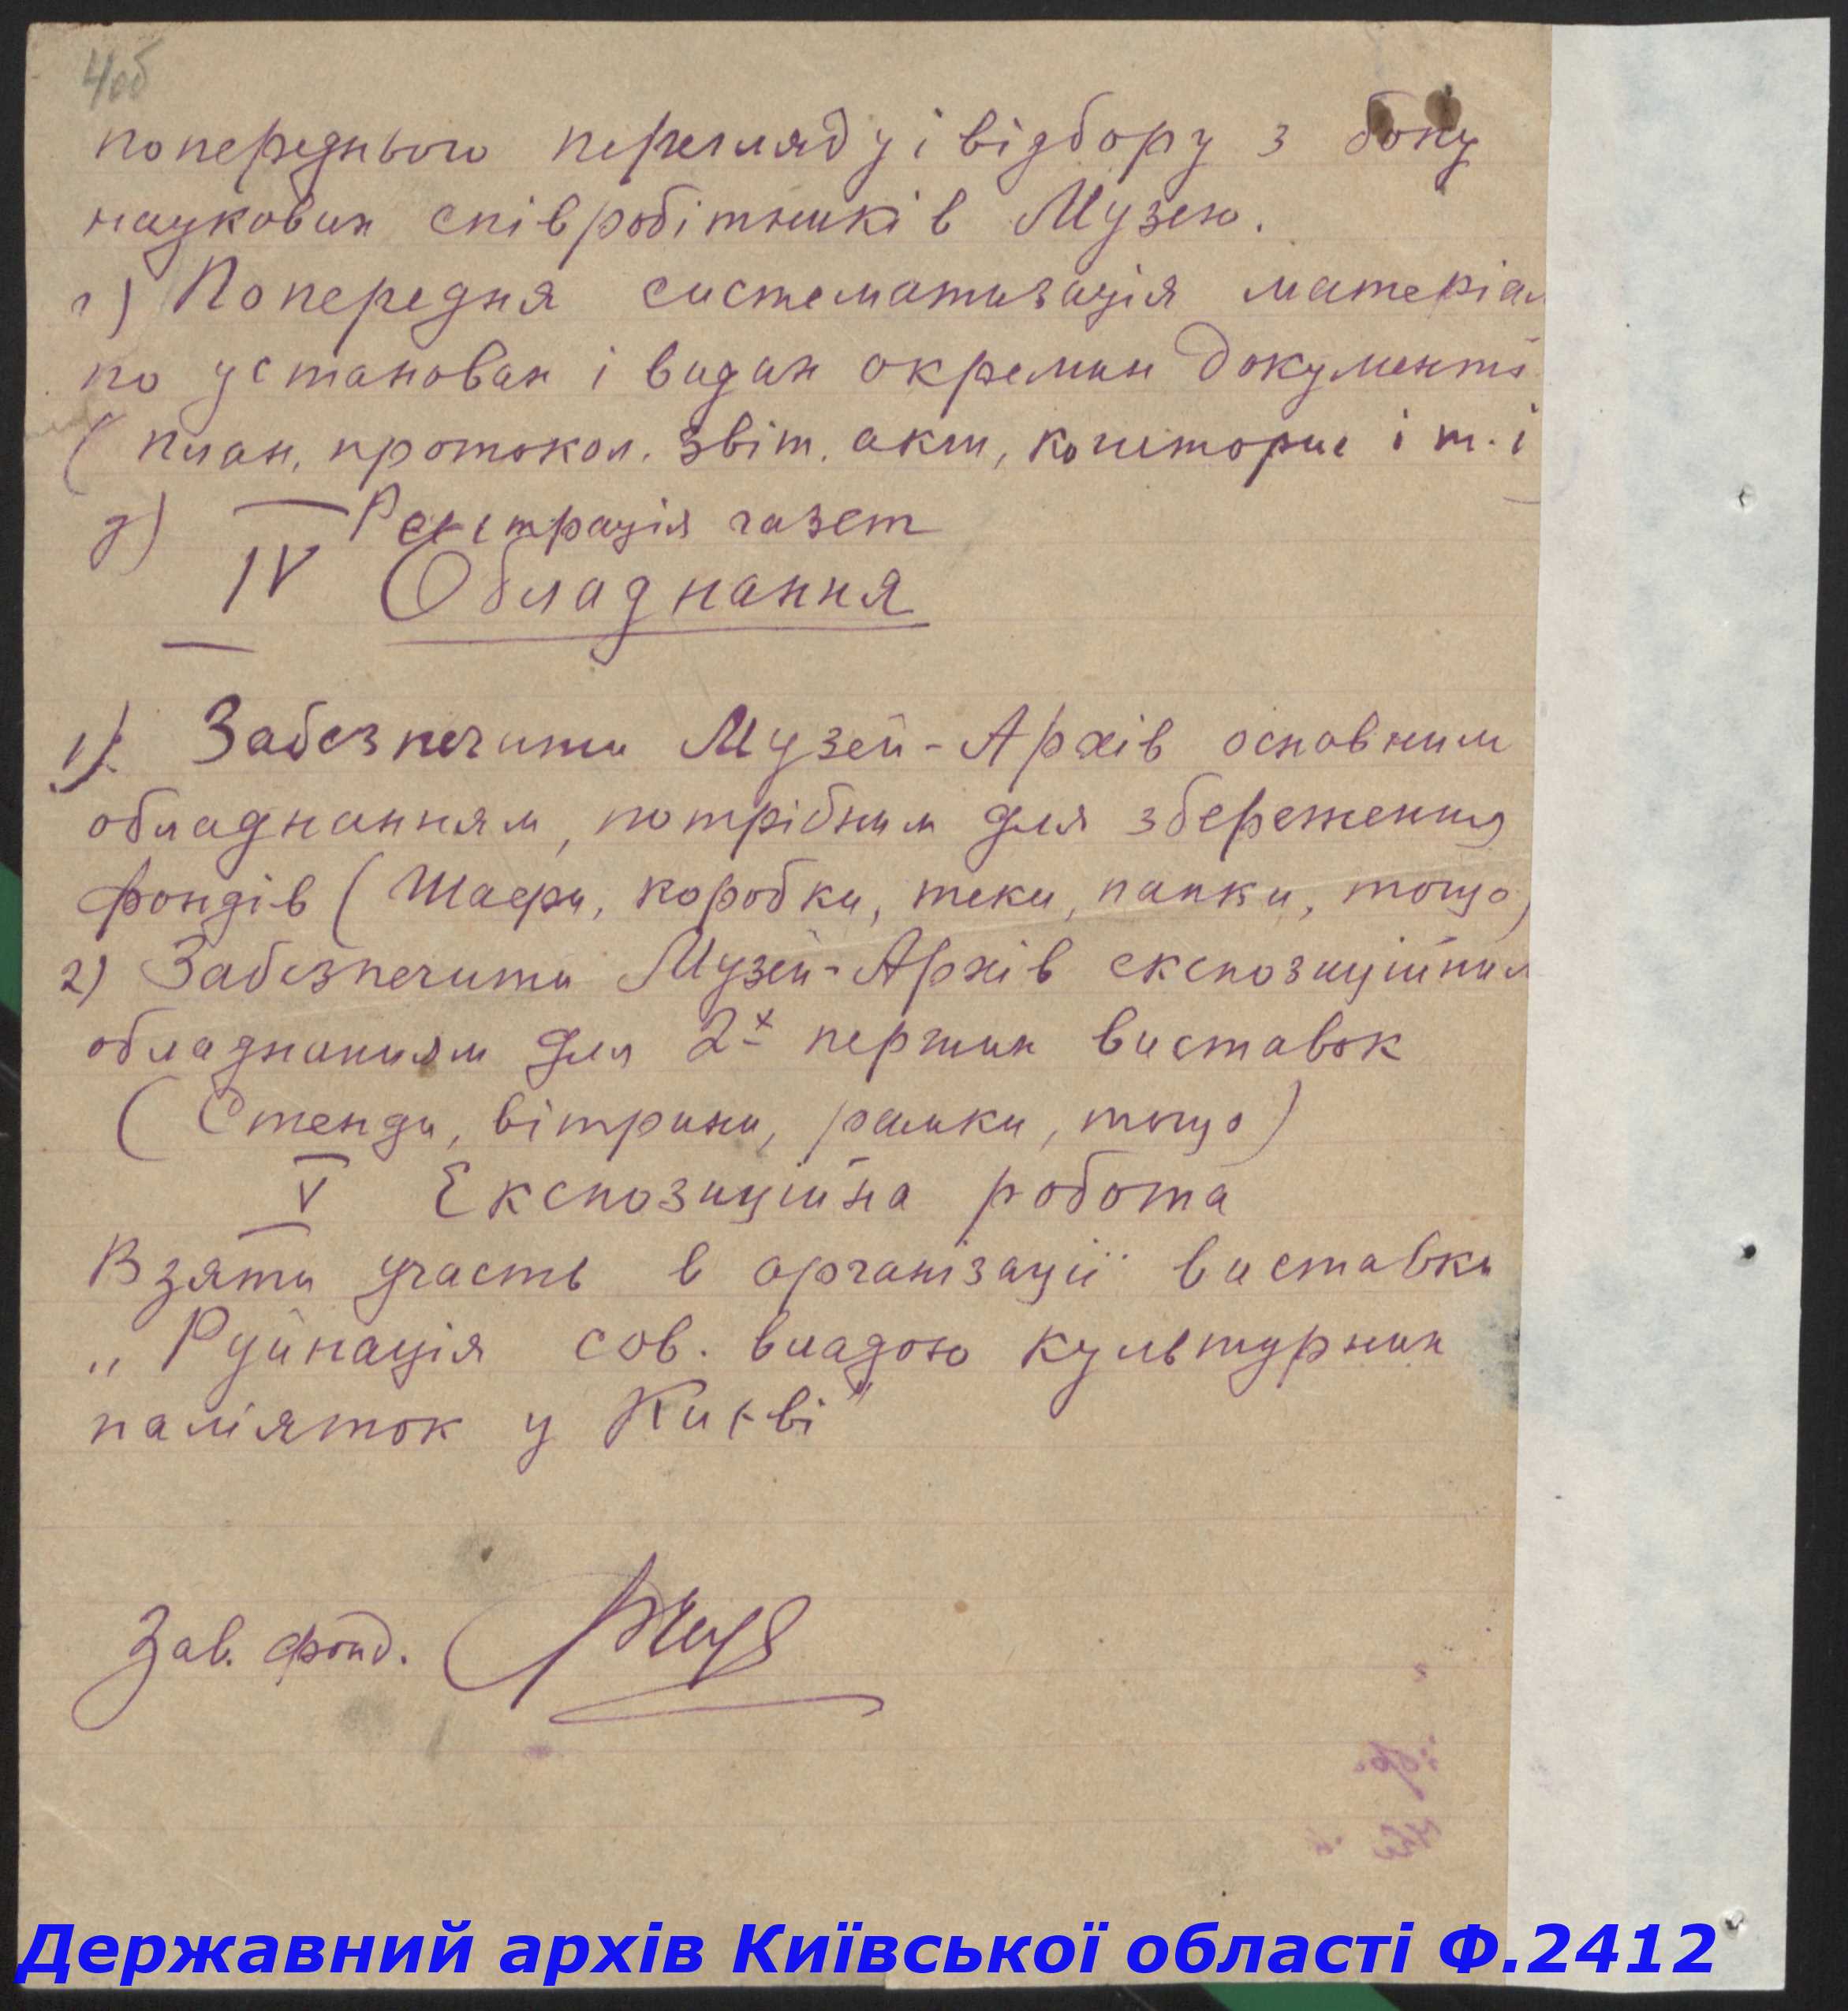 4об
попереднього перегляду і відбору з боку
наукових співробітників Музею.
г) Попередня систематизація матеріал
по установах і видах окремих документі
(план, протокол. звіт. акт, кошторис і т. і
д) Реєстрація газет
IV Обладнання
1). Забезпечити Музей-Архів основним
обладнанням, потрібним для збереження
фондів (Шафи, коробки, теки, папки, тощо)
2) Забезпечити Музей-Архів експозиційним
обладнанням для 2х перших виставок
(Стенди, вітрини, рамки, тощо)
V Експозиційна робота
Взяти участь в організації виставки
„Руйнація сов. владою культурних
пам'яток у Києві"
Зав. фонд.
Державний архів Київської області Ф.2412